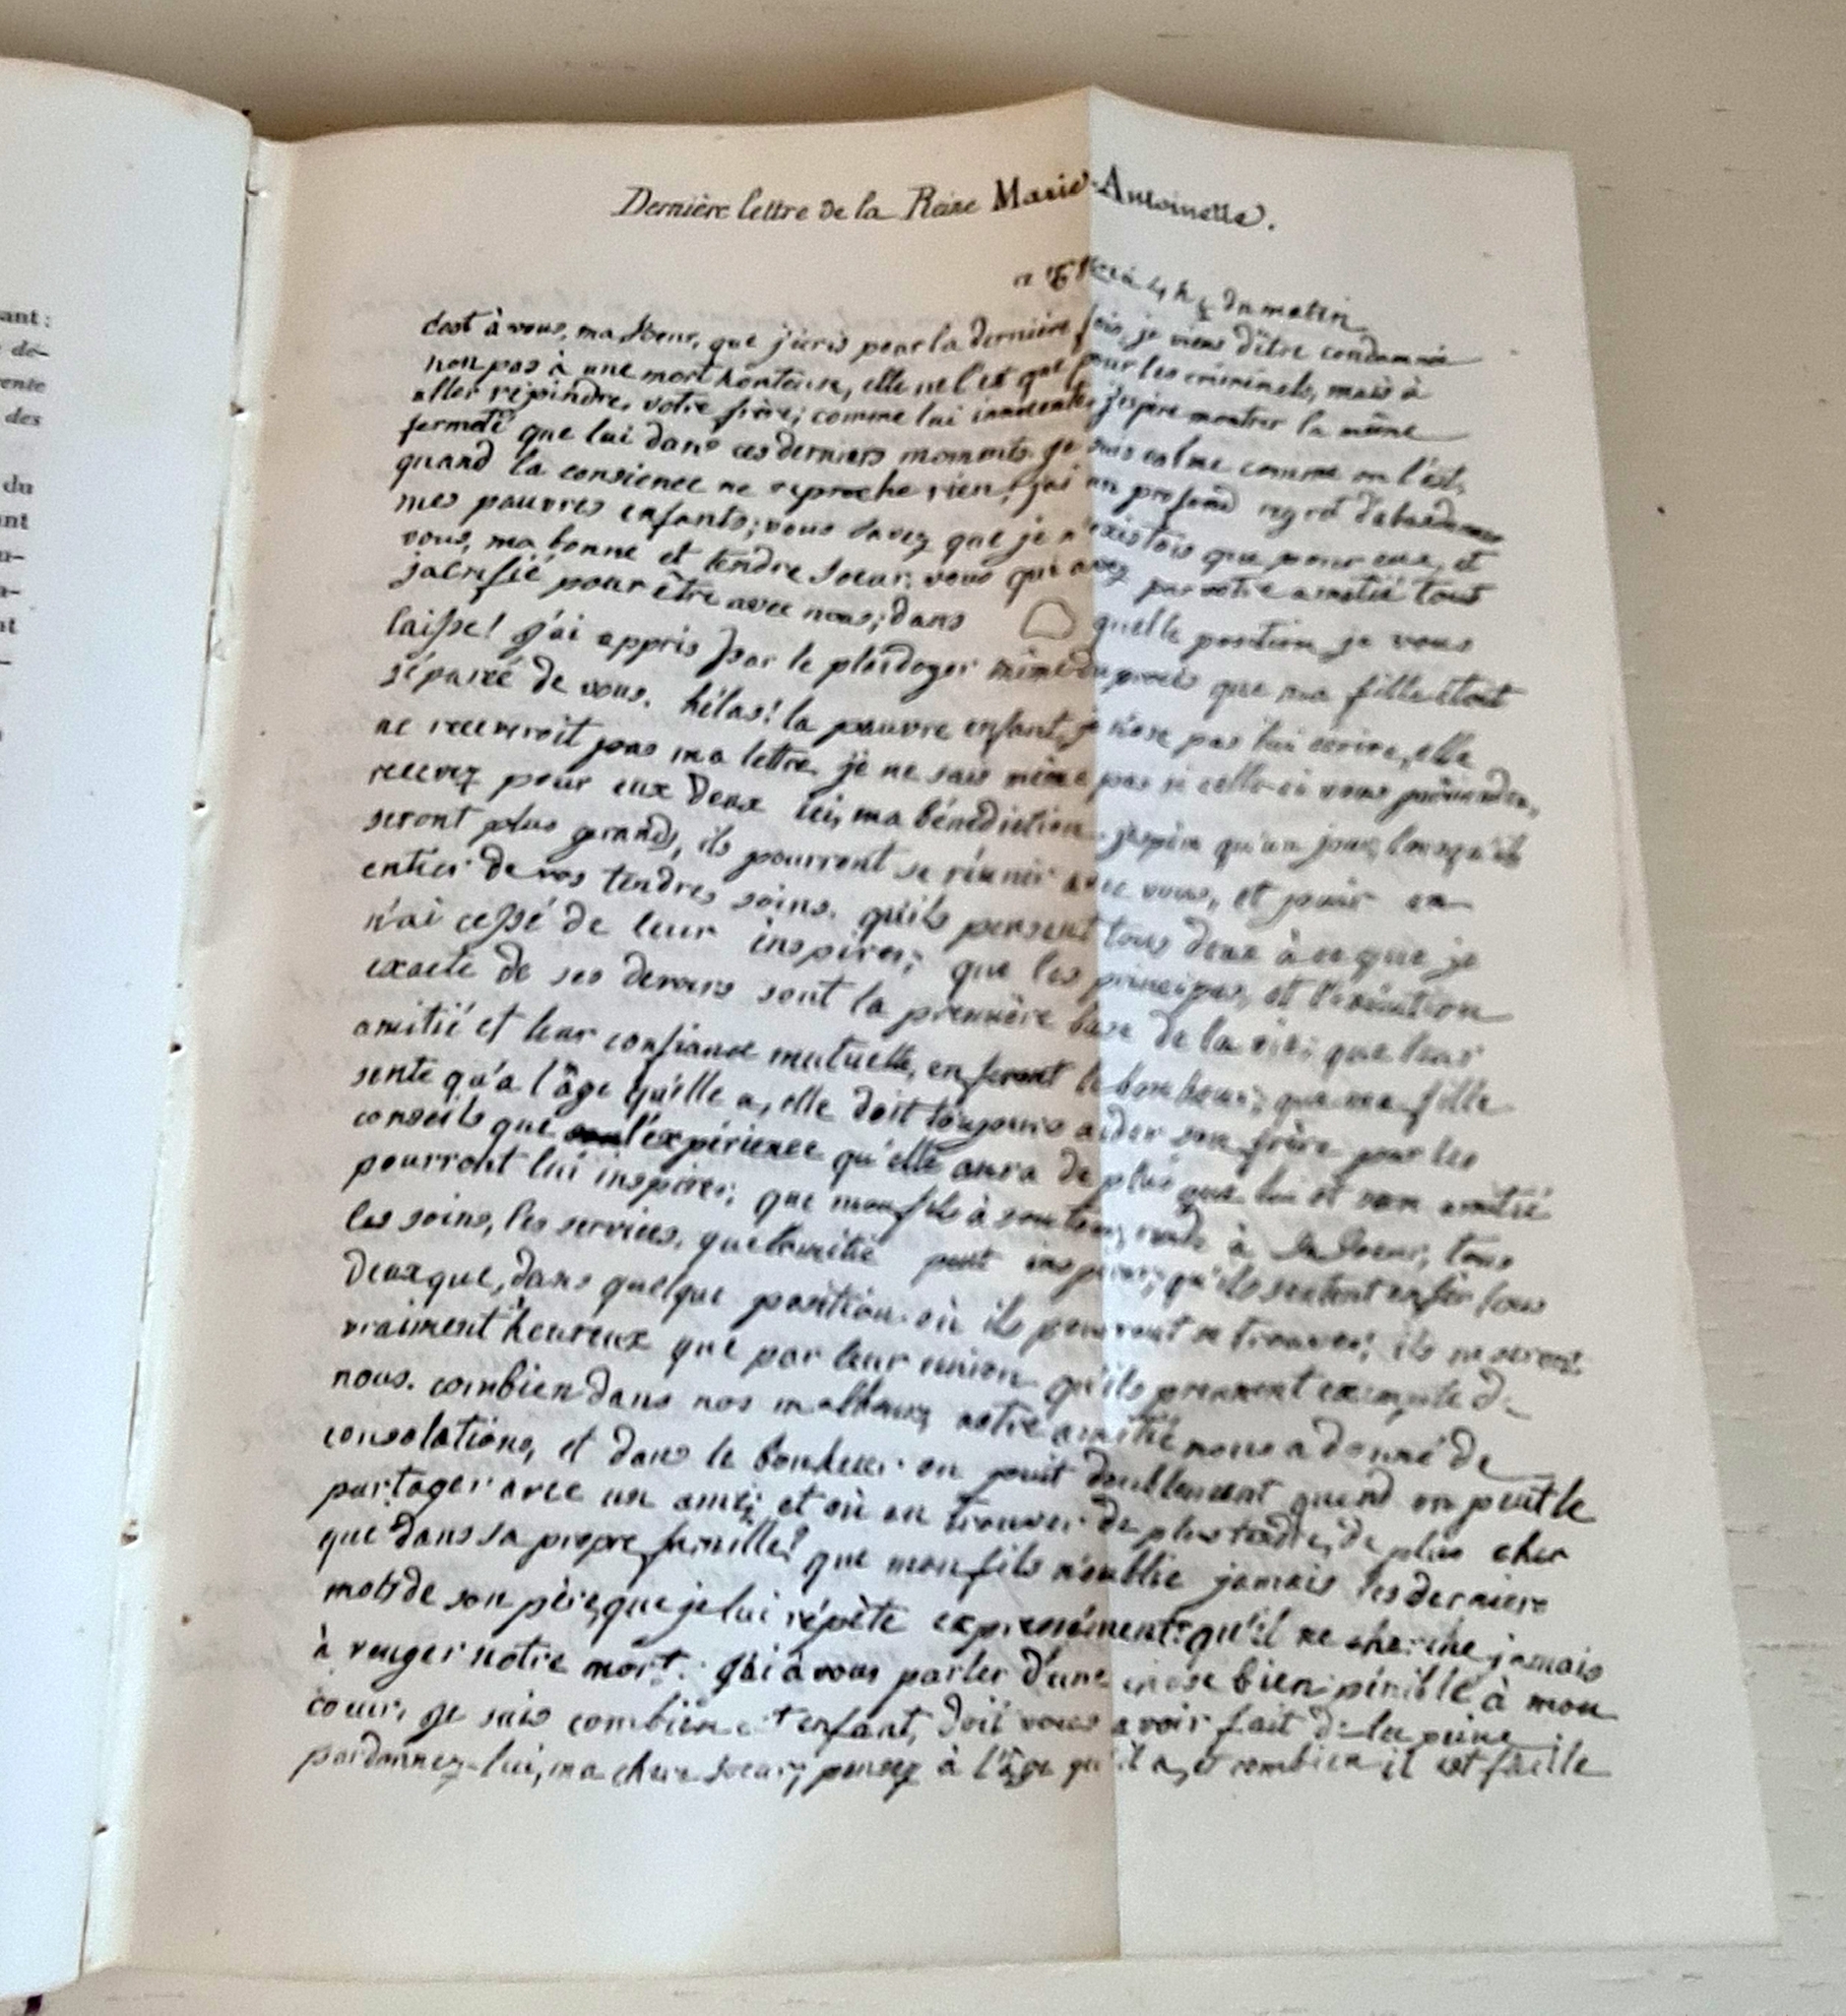 ant :
dé-
ente
des
du
ant
Dernière lettre de la Reine Marie-Antoinette.
à 4 h ½ du matin
c'est à vous, ma Soeur, que j'écris pour la dernière fois, je viens d'être condamnée
non pas à une mort honteuse, elle ne l'est que pour les criminels, mais à
aller rejoindre votre frère; comme lui innocente, j'espère montrer la même
fermeté que lui dans ces derniers moments. je suis calme comme on l'est,
quand la consience ne reproche rien; j'ai un profond regret d'abandonner
mes pauvres enfants; vous savez que je n'existois que pour eux, et
vous, ma bonne et tendre Soeur, vous qui avez par votre amitié tout
sacrifié pour être avec nous; dans quelle position je vous
laisse! j'ai appris par le plaidoyer même du procès que ma fille étoit
séparée de vous. hélas! la pauvre enfant, je n'ose pas lui écrire, elle
ne recevroit pas ma lettre, je ne sais même pas si celle-ci vous parviendra,
recevez pour eux deux ici, ma bénédiction. j'espère qu'un jour, lorsqu'ils
seront plus grands, ils pourront se réunir avec vous, et jouir en
entier de vos tendres soins. qu'ils pensent tous deux à ce que je
n'ai cessé de leur inspirer; que les principes, et l'exécution
exacte de ses devoirs sont la première base de la vie; que leur
amitié et leur confiance mutuelle, en feront le bonheur; que ma fille
sente qu'a l'âge qu'elle a, elle doit toujours aider son frère pour les
conseils que l'expérience qu'elle aura de plus que lui et son amitié
pourront lui inspirer; que mon fils à son tour, rende à sa Soeur, tous
les soins, les services, que l'amitié peut inspirer; qu'ils sentent enfin tous
deux que, dans quelque position où ils pourront se trouver, ils ne seront
vraiment heureux que par leur union. qu'ils prennent exemple de
nous. combien dans nos malheurs, notre amitié nous a donné de
consolations, et dans le bonheur on jouit doublement quand on peut le
partager avec un ami; et où en trouver de plus tendre, de plus cher
que dans sa propre famille? que mon fils n'oublie jamais les derniers
mots de son père, que je lui répète expressément: qu'il ne cherche jamais
à venger notre mort. j'ai à vous parler d'une chose bien pénible à mon
coeur, je sais combien cet enfant, doit vous avoir fait de la peine;
pardonnez-lui, ma chère Soeur; pensez à l'âge qu'il a, et combien il est facile